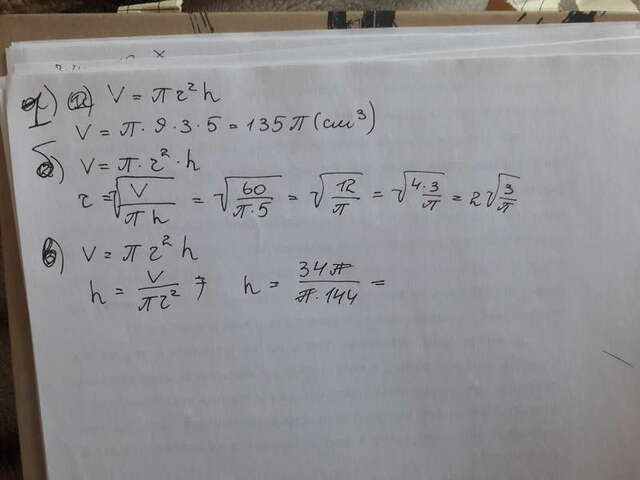 1) а) V = π r² h
V = π · 9 · 3 · 5 = 135 π (см³)
б) V = π · r² · h
r = √(V/(π h)) = √(60/(π · 5)) = √(12/π) = √(4 · 3/π) = 2√(3/π)
в) V = π r² h
h = V/(π r²) ; h = 34π/(π · 144) =
x